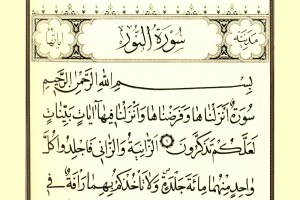 مدنية سورة النور آياتها
بِسْمِ اللهِ الرَّحْمٰنِ الرَّحِيمِ
سُورَةٌ أَنْزَلْنَاهَا وَفَرَضْنَاهَا وَأَنْزَلْنَا فِيهَا آيَاتٍ بَيِّنَاتٍ
لَعَلَّكُمْ تَذَكَّرُونَ الزَّانِيَةُ وَالزَّانِي فَاجْلِدُوا كُلَّ
وَاحِدٍ مِنْهُمَا مِائَةَ جَلْدَةٍ وَلَا تَأْخُذْكُمْ بِهِمَا رَأْفَةٌ فِي